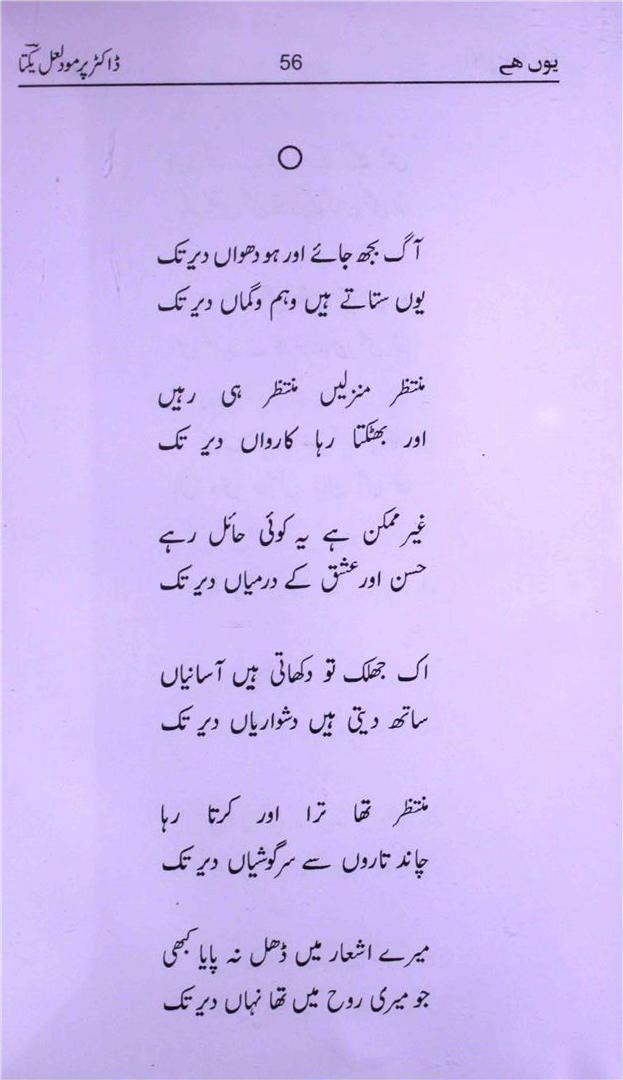 یوں ھے 56 ڈاکٹر پرمود لعل یکتا
آگ بجھ جائے اور ہو دھواں دیر تک
یوں ستاتے ہیں وہم وگماں دیر تک
منتظر منزلیں منتظر ہی رہیں
اور بھٹکتا رہا کارواں دیر تک
غیر ممکن ہے یہ کوئی حائل رہے
حسن اور عشق کے درمیاں دیر تک
اک جھلک تو دکھاتی ہیں آسانیاں
ساتھ دیتی ہیں دشواریاں دیر تک
منتظر تھا ترا اور کرتا رہا
چاند تاروں سے سرگوشیاں دیر تک
میرے اشعار میں ڈھل نہ پایا کبھی
جو میری روح میں تھا نہاں دیر تک